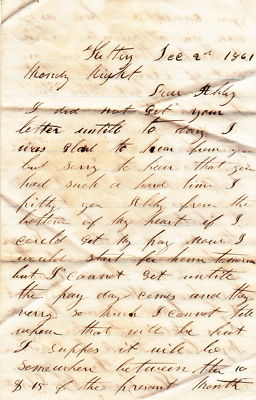 Dec 2d 1861
Mondy Night
Dear Abby
I did not get your
letter untill to day I
was glad to hear from you
but sorry to hear that you
had such a hard time I
pitty you Abby from the
bottom of my heart if I
coreld get my pay Now I
would start for home tomorrow
but I cannot get untill
the pay day comes and they
verry so much I cannot tell
when that will be but
I suppos it will be
somewhere between the 10
& 15 of the present Month